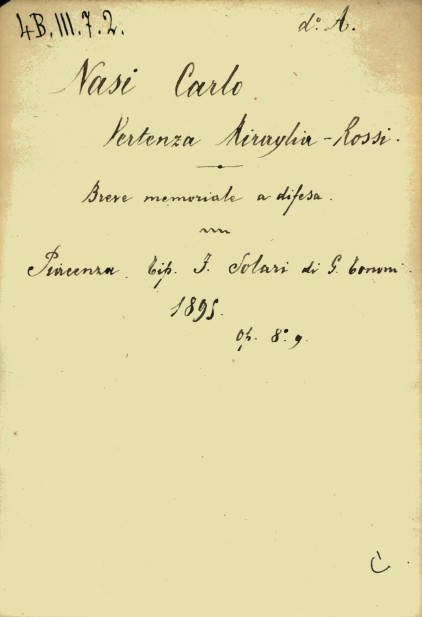 4B.III.7.2.
d.° A.
Nasi Carlo
Vertenza Miraglia-Rossi.
Breve memoriale a difesa.
Piacenza. Tip. F. Solari di G. Tononi.
1895.
Op. 8.° 9.